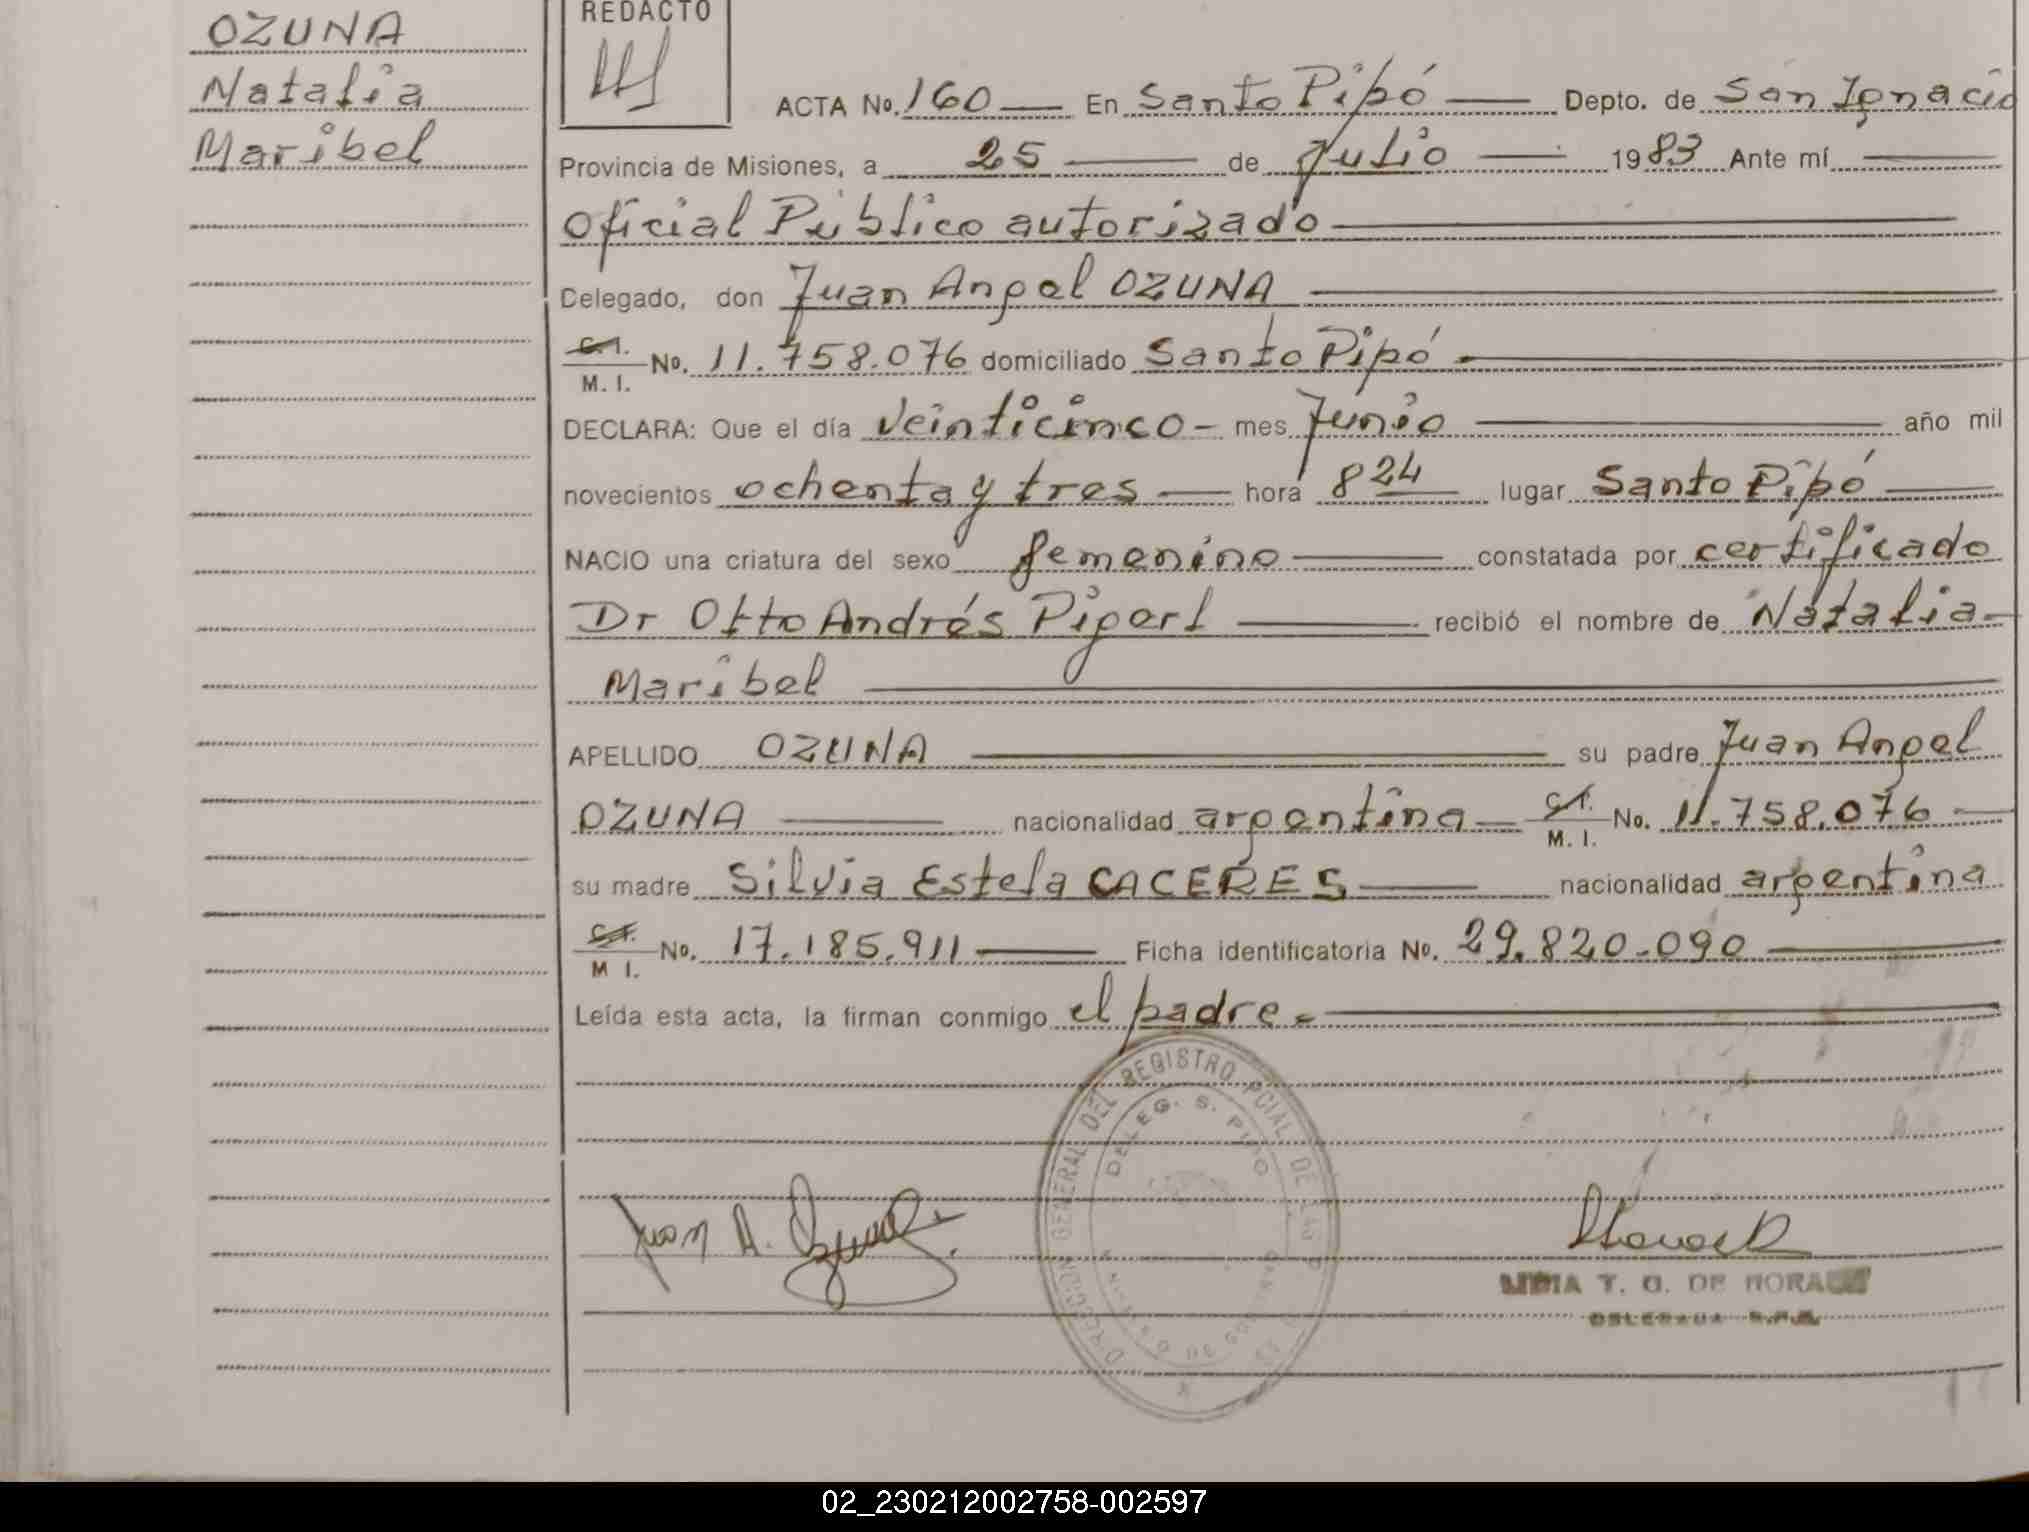 OZUNA
Natalia
Maribel
REDACTO
ACTA No. 160 En Santo Pipó Depto. de San Ignacio
Provincia de Misiones, a 25 de Julio 1983 Ante mí
Oficial Público autorizado
Delegado, don Juan Angel OZUNA
C.I. M. I. No. 11.758.076 domiciliado Santo Pipó
DECLARA: Que el día veinticinco - mes Junio año mil
novecientos ochenta y tres hora 8 24 lugar Santo Pipó
NACIO una criatura del sexo femenino constatada por certificado
Dr Otto Andrés recibió el nombre de Natalia
Maribel
APELLIDO OZUNA su padre Juan Angel
OZUNA nacionalidad argentina C.I. M. I. No. 11.758.076
su madre Silvia Estela CACERES nacionalidad argentina
C.I. M I. No. 17.185.911 Ficha identificatoria No. 29.820.090
Leída esta acta, la firman conmigo el padre.
DIRECCION GENERAL DEL REGISTRO PCIAL DE LAS
DELEG. S. PIPO
Juan A. Ozuna
T. G. DE MORALES
DELEGADA
02_230212002758-002597